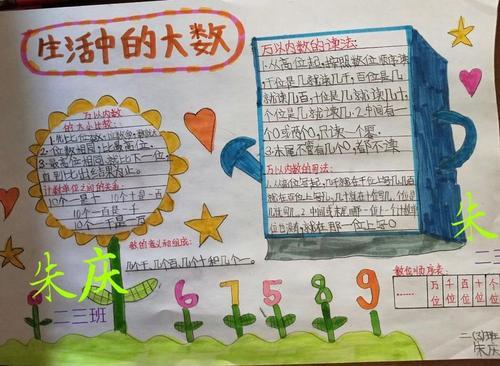 生活中的大数
万以内数
的大小比较:
1.先比位数,位数多,数就大
2.位数相同,比最高位。
3.最高位相同,就比下一位
直到比出结果为止。
计数单位之间的关系:
10个一是十 10个十是一百
10个一百是一千
10个一千是一万
数的意义和组成:
几个千、几个百、几个十和几个一。
万以内数的读法:
1.从高位起,按照数位顺序读
千位是几就读几千,百位是几
就读几百,十位是几就读几十
个位是几就读几。2.中间有一
个0或两个0,只读一个零。
3.末尾不管有几个0,都不读
万以内数的写法:
1.从高位写起,几千就在千位上写几几百
就在百位上写几,几十就在十位写几,几个
几在个位写几。2.中间或末尾哪一位上一个计数单
位也没有,就在那一位上写0
朱庆
二三班
朱
二三
6 7 5 8 9
数位顺序表:
…… 万位 千位 百位 十位 个位
二(3)班
朱庆